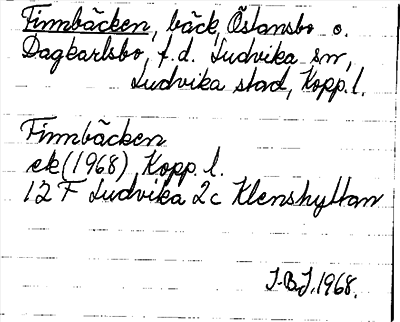 Finnbäcken, bäck, Östansbo o.
Dagkarlsbo, f.d. Ludvika sn,
Ludvika stad, Kopp. l.
Finnbäcken
ek (1968) Kopp. l.
12 F Ludvika 2c Klenshyttan
J.B.J. 1968.